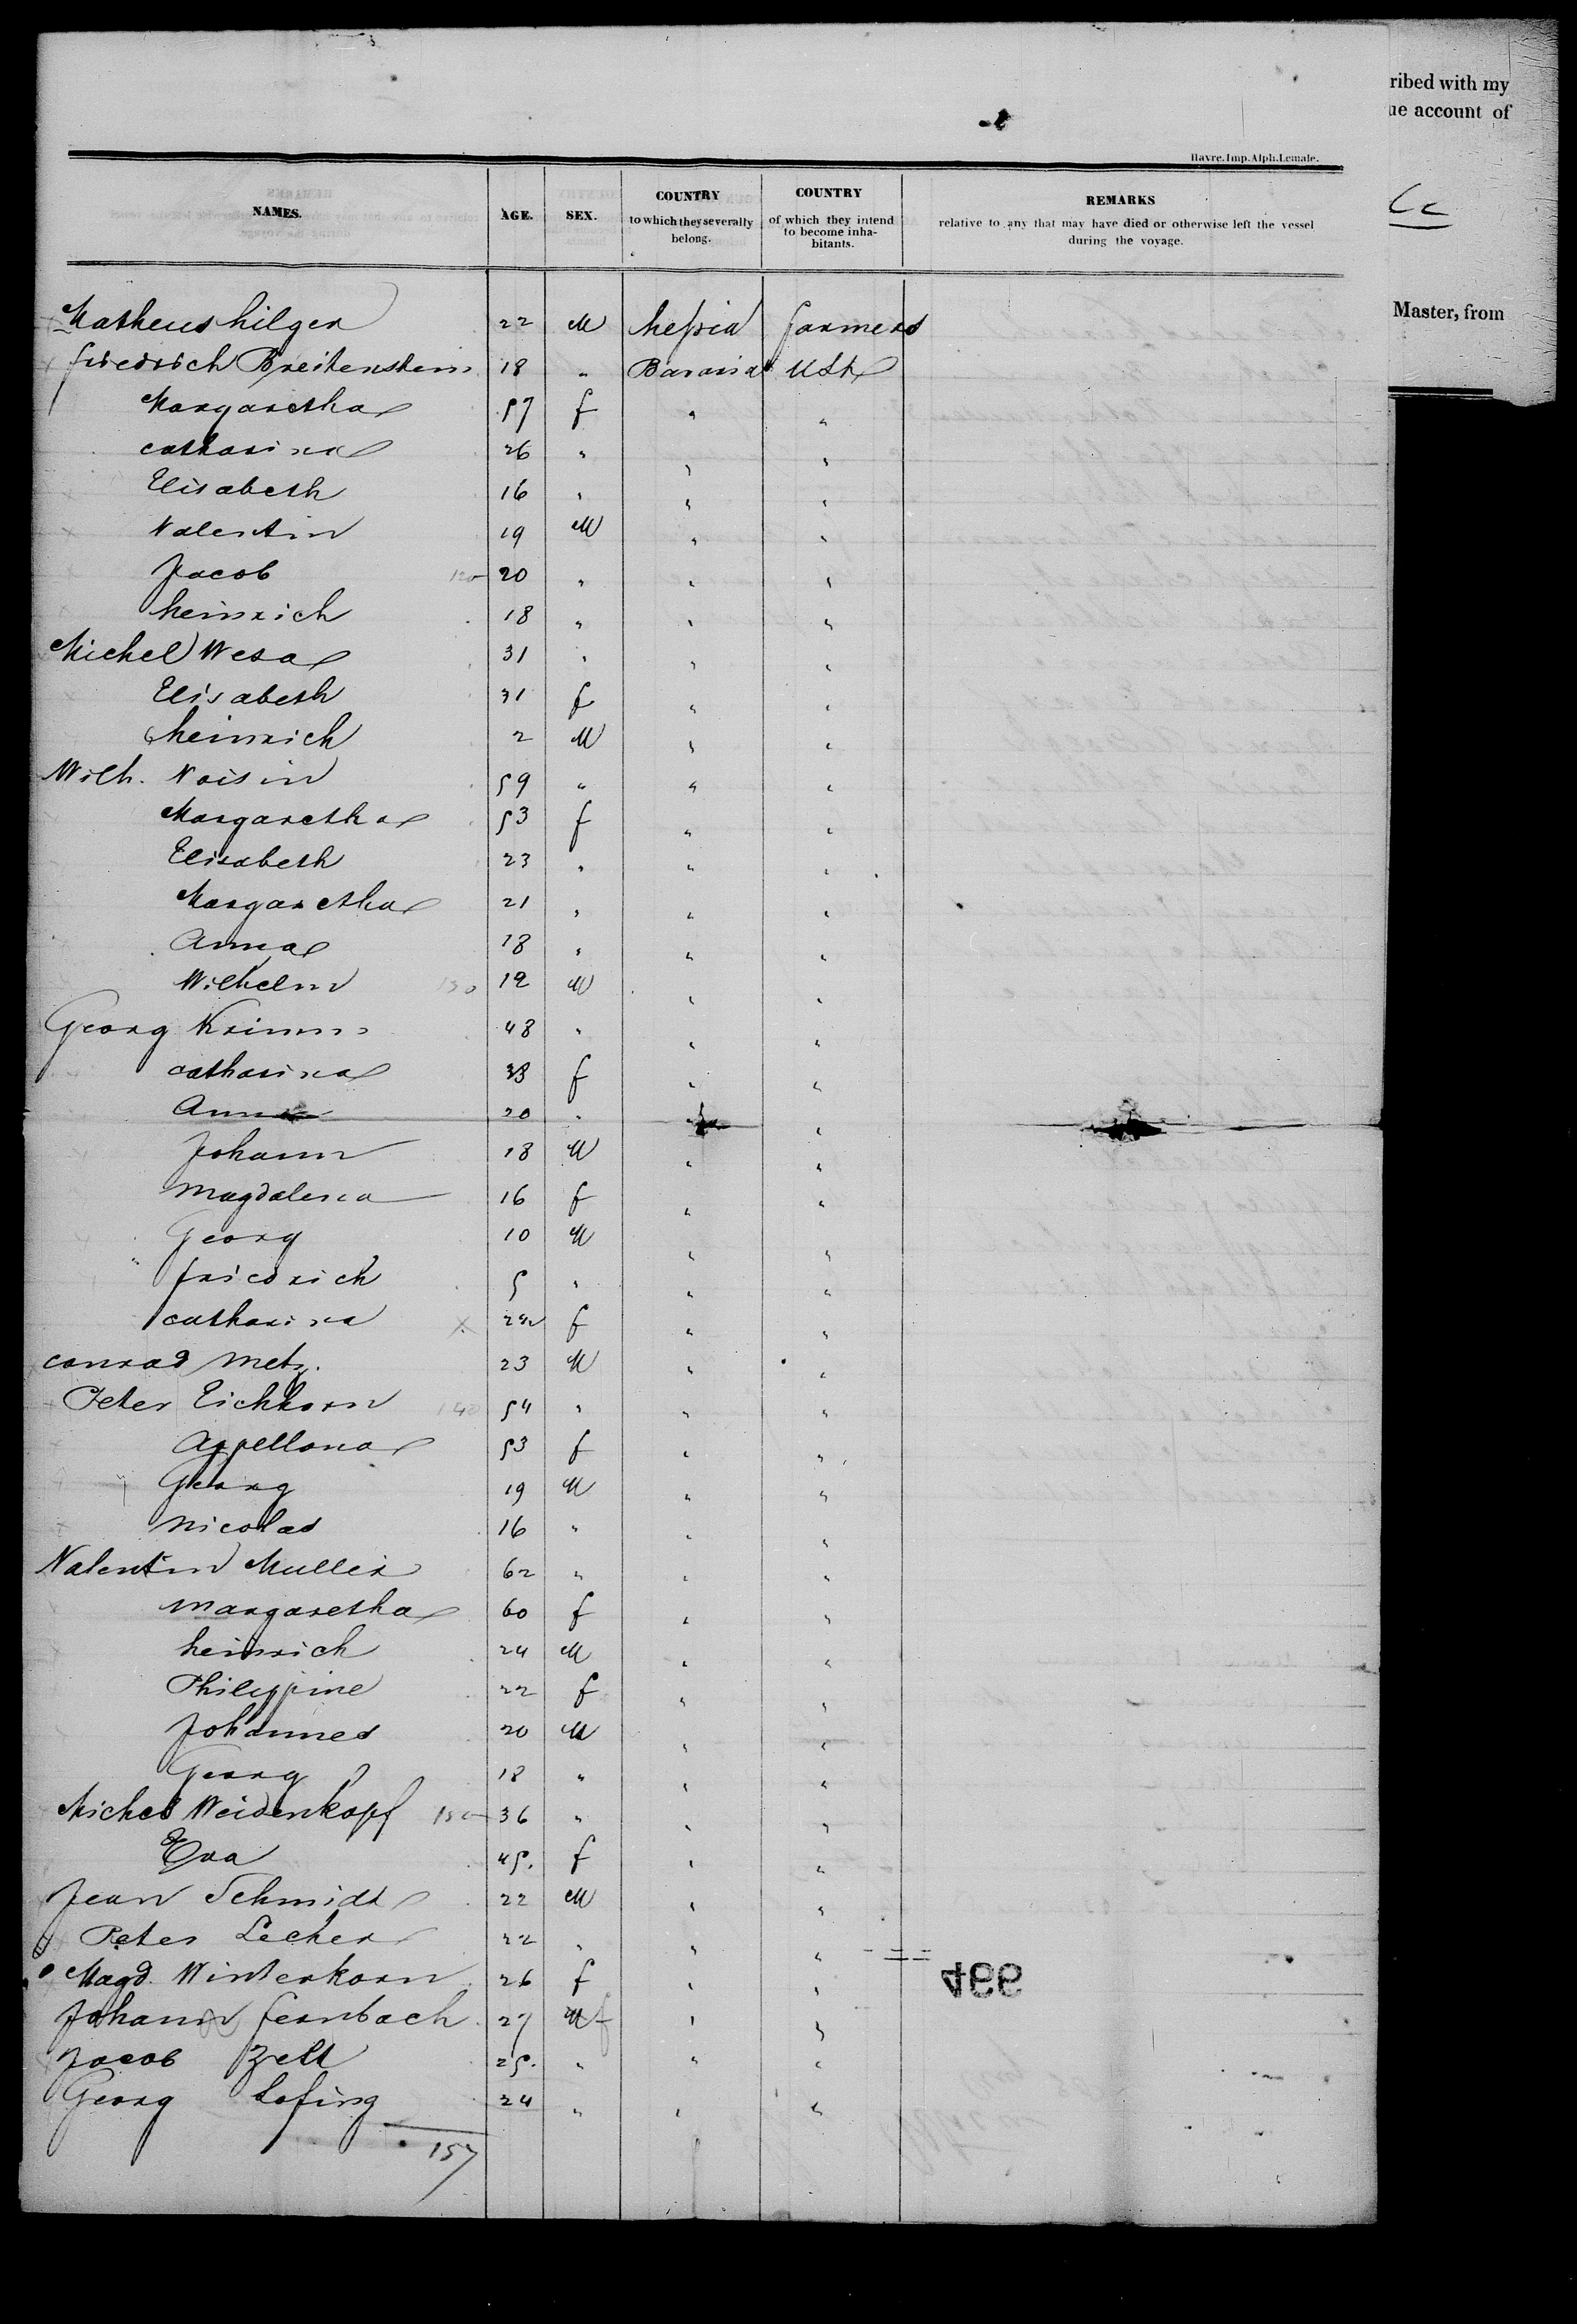 ribed with my
ue account of
Havre. Imp. Alph. Lemale.
NAMES. AGE. SEX. COUNTRY to which they severally belong. COUNTRY of which they intend to become inhabitants. REMARKS relative to any that may have died or otherwise left the vessel during the voyage.
Master, from
Matheus hilger 22 M hessia farmers
friedrich Breitenstein 18 " Bavaria USt
Margaretha 57 f " "
catharina 26 " " "
Elisabeth 16 " " "
Valentin 19 M " "
Jacob 120 20 " " "
heinrich 18 " " "
Michel Wesa 31 " " "
Elisabeth 31 f " "
heinrich 2 M " "
Wilh. Voisin 59 " " "
Margaretha 53 f " "
Elisabeth 23 " " "
Margaretha 21 " " "
Anna 18 " " "
Wilhelm 130 12 M " "
Georg Krimm 48 " " "
catharina 38 f " "
Anna 20 " " "
Johann 18 M " "
Magdalena 16 f " "
Georg 10 M " "
friedrich 5 " " "
catharina f " "
conrad Metz. 23 M " "
Peter Eichhorn 140 54 " " "
Appellona 53 f " "
Georg 19 M " "
Nicolas 16 " " "
Valentin Muller 62 " " "
Margaretha 60 f " "
heinrich 24 M " "
Philippine 22 f " "
Johannes 20 M " "
Georg 18 " " "
Michel Weidenkopf 150 36 " " "
Eva 45. f " "
Jean Schmidt 22 M " "
Peter Lecher 22 " " "
Magd. Winterkorn 26 f " "
Johann fernbach 27 M f " "
Jacob Zell 25. " " "
Georg Lofing 24 " " "
157
499